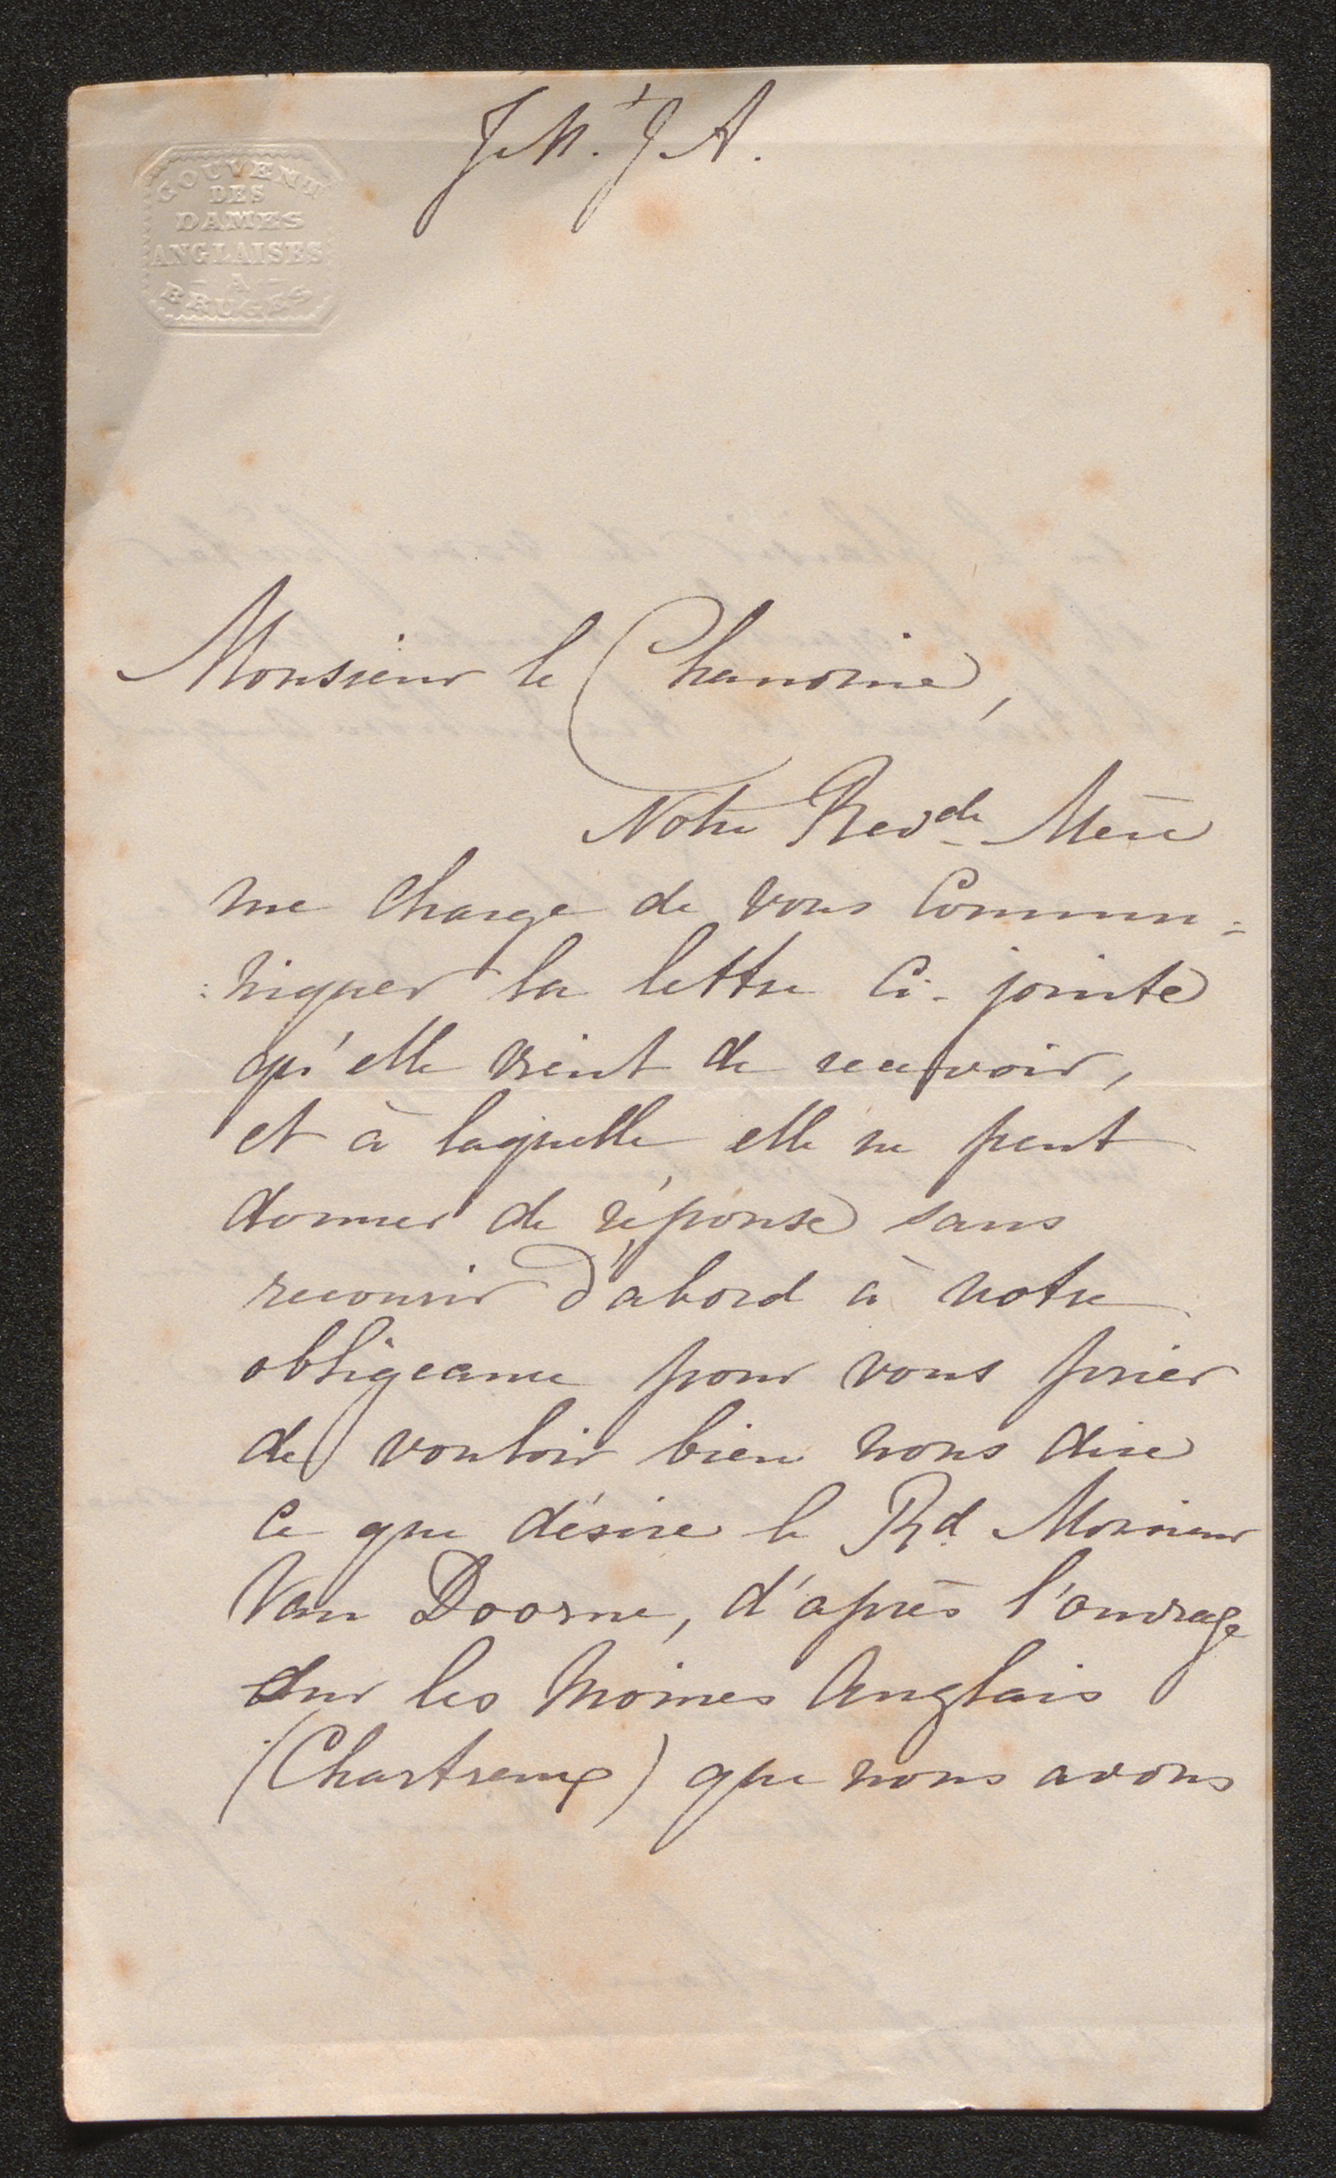 J. M. + J. A.
COUVENT
DES
DAMES
ANGLAISES
A
BRUGES
Monsieur le Chanoine,
Notre Revde Mère
me charge de vous commun=
:niquer la lettre ci-jointe
qu'elle vient de recevoir,
et à laquelle elle ne peut
donner de réponse sans
recourir d'abord à votre
obligeance pour vous prier
de vouloir bien nous dire
ce que désire le Rd. Monsieur
Van Doorne, d'après l'ouvrage
sur les Moines Anglais
(Chartreux) que nous avons